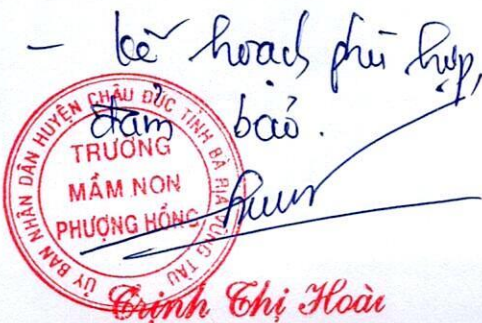 - kế hoạch phù hợp,
đảm bảo.
ỦY BAN NHÂN DÂN HUYỆN CHÂU ĐỨC TỈNH BÀ RỊA VŨNG TÀU
TRƯỜNG
MẦM NON
PHƯỢNG HỒNG
Trịnh Thị Hoài